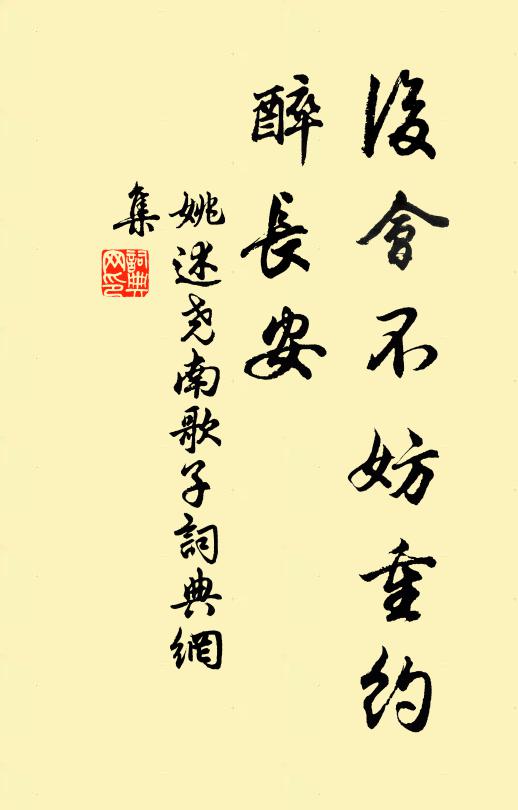 後會不妨重約
醉長安
姚述尧南歌子詞典網
集
詞典
网印